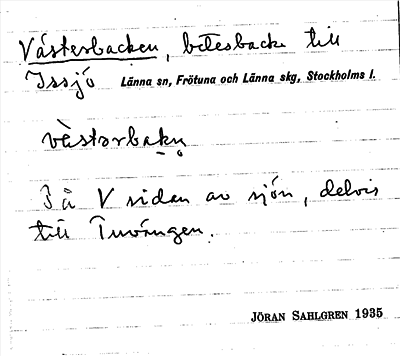 Västerbacken, betesbacke till
Issjö Länna sn, Frötuna och Länna skg, Stockholms l.
västərbakn̥
På V sidan av sjön, delvis
till Tuvängen.
JÖRAN SAHLGREN 1935